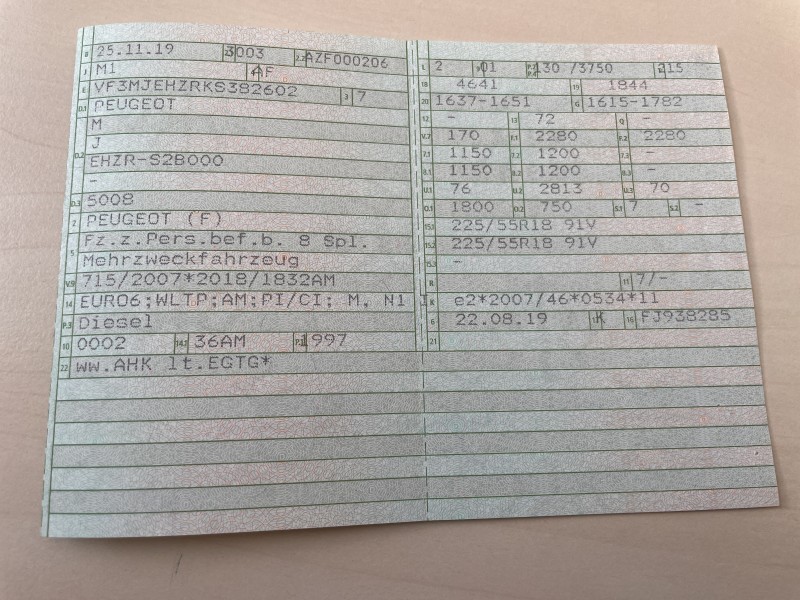 B 25.11.19 2.1 3003 2.2 AZF000206
J M1 4 AF
E VF3MJEHZRKS382602 3 7
D.1 PEUGEOT
M
J
D.2 EHZR-S2B000
-
D.3 5008
2 PEUGEOT (F)
5 Fz.z.Pers.bef.b. 8 Spl.
Mehrzweckfahrzeug
V.9 715/2007*2018/1832AM
14 EURO6;WLTP;AM;PI/CI; M, N1 I
P.3 Diesel
10 0002 14.1 36AM P.1 1997
22 ww.AHK lt.EGTG*
L 2 9 01 P.2 P.4 130 /3750 T 215
18 4641 19 1844
20 1637-1651 G 1615-1782
12 - 13 72 Q -
V.7 170 F.1 2280 F.2 2280
7.1 1150 7.2 1200 7.3 -
8.1 1150 8.2 1200 8.3 -
U.1 76 U.2 2813 U.3 70
O.1 1800 O.2 750 S.1 7 S.2 -
15.1 225/55R18 91V
15.2 225/55R18 91V
15.3 -
R 11 7/-
K e2*2007/46*0534*11
6 22.08.19 17 K 16 FJ938285
21